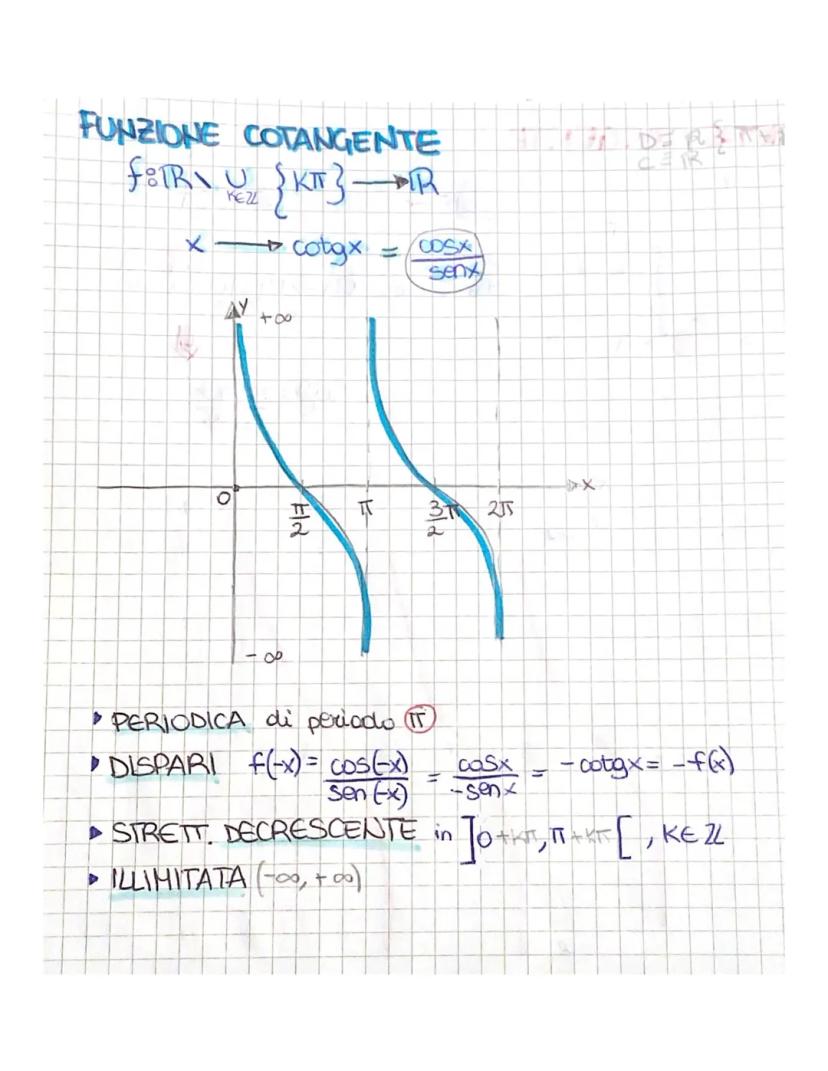 FUNZIONE COTANGENTE
f: ℝ \ ∪ {Kπ} → ℝ
K∈ℤ
x → cotgx = cosx / senx
y +∞
x
0 π/2 π 3/2 π 2π
-∞
PERIODICA di periodo π
DISPARI f(-x) = cos(-x) / sen(-x) = cosx / -senx = -cotgx = -f(x)
STRETT. DECRESCENTE in ]0+kπ, π+kπ[, K∈ℤ
ILLIMITATA (-∞, +∞)